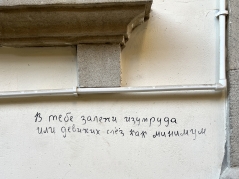 В тебе залежи изумруда
или девичих слёз как минимум